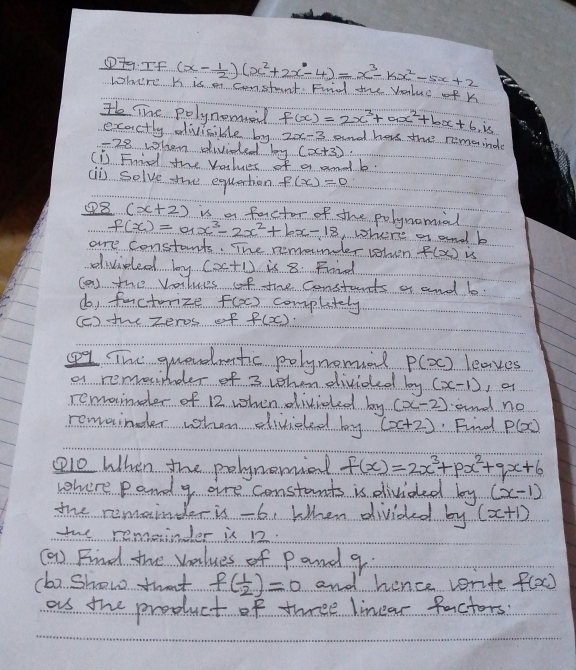 Q7a IF (x - 1/2)(x² + 2x - 4) = x³ - Kx² - 5x + 2
where K is a constant. Find the value of K
7b The polynomial f(x) = 2x³ + ax² + bx + 6, is
exactly divisible by 2x-3 and has the remainde
-28 when divided by (x+3).
(i) Find the values of a and b.
(ii) Solve the equation f(x) = 0
Q8 (x+2) is a factor of the polynomial
f(x) = ax³ - 2x² + bx - 18, where a and b
are constants. The remainder when f(x) is
divided by (x+1) is 8. Find
(a) the values of the constants a and b.
(b) factorize f(x) completely
(c) the zeros of f(x).
Q9 The quadratic polynomial P(x) leaves
a remainder of 3 when divided by (x-1), a
remainder of 12 when divided by (x-2) and no
remainder when divided by (x+2). Find P(x)
Q10 When the polynomial f(x) = 2x³ + px² + qx + 6
where p and q are constants is divided by (x-1)
the remainder is -6. When divided by (x+1)
the remainder is 12.
(a) Find the values of p and q.
(b) Show that f(1/2) = 0 and hence write f(x)
as the product of three linear factors.